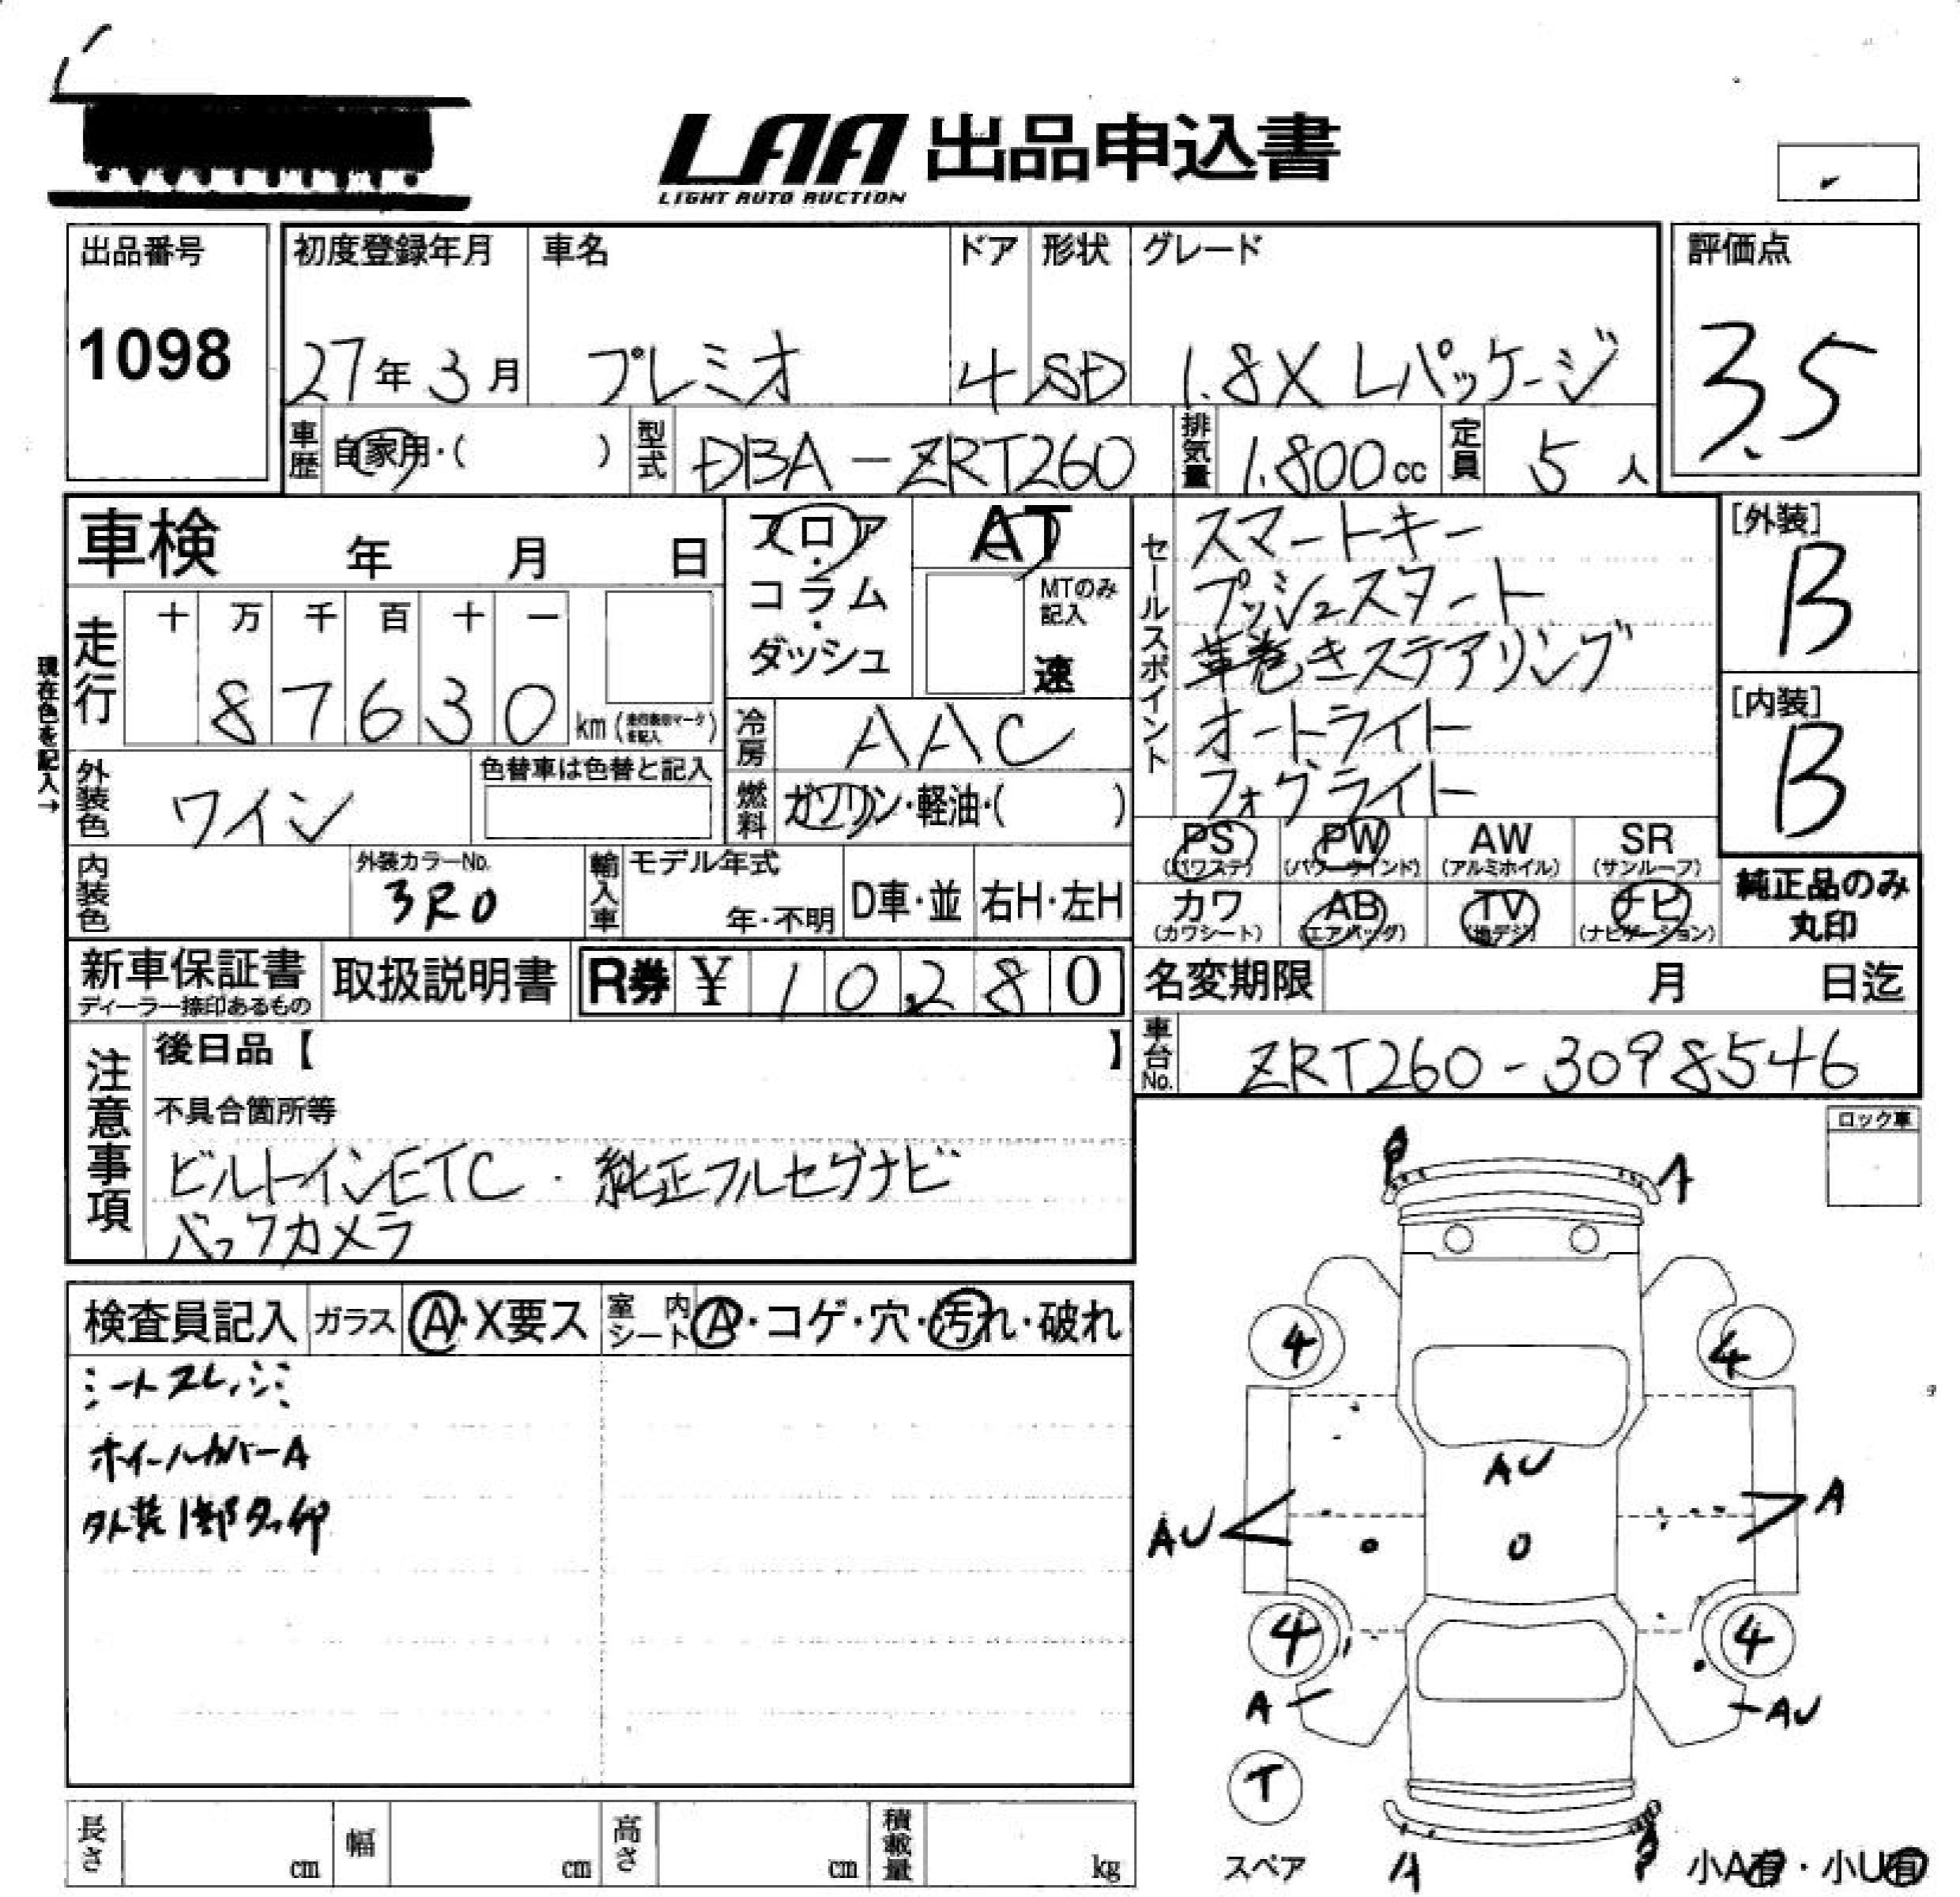 LAA 出品申込書
LIGHT AUTO AUCTION
出品番号
1098
初度登録年月
27年3月
車名
プレミオ
ドア
4
形状
SD
グレード
1.8X Lパッケージ
評価点
3.5
車歴
自家用・( )
型式
DBA-ZRT260
排気量
1.800cc
定員
5人
車検 年 月 日
フロア・コラム・ダッシュ
AT
MTのみ記入
速
セールスポイント
スマートキー
プッシュスタート
革巻きステアリング
オートライト
フォグライト
[外装]
B
[内装]
B
現在色を記入→
走行
十 万 千 百 十 一
8 7 6 3 0 km
冷房
AAC
外装色
ワイン
色替車は色替と記入
燃料
ガソリン・軽油・( )
PS
(パワステ)
PW
(パワーウインド)
AW
(アルミホイル)
SR
(サンルーフ)
内装色
外装カラーNo.
3R0
輸入車
モデル年式
年・不明
D車・並
右H・左H
カワ
(カワシート)
AB
(エアバッグ)
TV
(地デジ)
ナビ
(ナビゲーション)
純正品のみ
丸印
新車保証書
ディーラー捺印あるもの
取扱説明書
R券 ¥ 10,280
名変期限 月 日迄
車台No.
ZRT260-3098546
注意事項
後日品【 】
不具合箇所等
ビルトインETC・純正フルセグナビ
バックカメラ
ロック車
検査員記入
ガラス
A・X要ス
室内シート
A・コゲ・穴・汚れ・破れ
ホイールカバーA
A
4
4
AU
AU
A
4
4
A
AU
T
スペア
A
小A有・小U有
長さ cm
幅 cm
高さ cm
積載量 kg